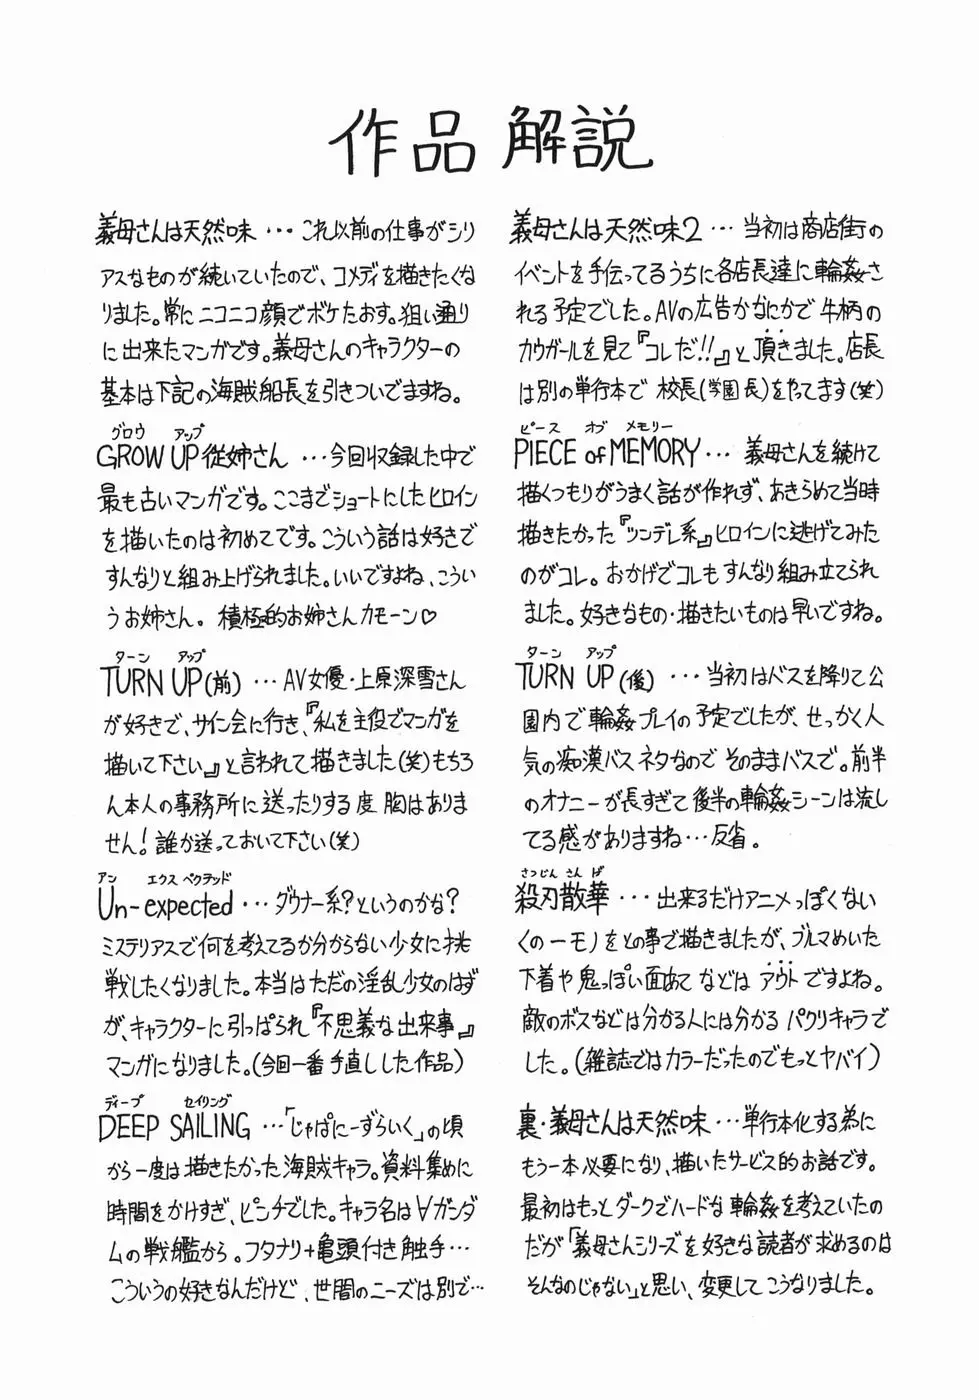 作品 解説
義母さんは天然味・・・これ以前の仕事がシリ
アスなものが続いていたので、コメディを描きたくな
りました。常にニコニコ顔でボケたおす。狙い通り
に出来たマンガです。義母さんのキャラクターの
基本は下記の海賊船長を引きついでますね。
グロウ アップ
GROW UP従姉さん ・・・今回収録した中で
最も古いマンガです。ここまでショートにしたヒロイン
を描いたのは初めてです。こういう話は好きで
すんなりと組み上げられました。いいですよね、こうい
うお姉さん。積極的お姉さんカモーン♡
ターン アップ
TURN UP(前) ・・・AV女優・上原深雪さん
が好きで、サイン会に行き、『私を主役でマンガを
描いて下さい』と言われて描きました(笑)もちろ
ん本人の事務所に送ったりする度胸はありま
せん!誰か送っておいて下さい(笑)
アン エクスペクテッド
Un-expected ・・・ダウナー系?というのかな?
ミステリアスで何を考えてるか分からない少女に挑
戦したくなりました。本当はただの淫乱少女のはず
が、キャラクターに引っぱられ『不思議な出来事』
マンガになりました。(今回一番手直しした作品)
ディープ セイリング
DEEP SAILING ・・・「じゃぱにーずらいく」の頃
から一度は描きたかった海賊キャラ。資料集めに
時間をかけすぎ、ピンチでした。キャラ名は∀ガンダ
ムの戦艦から。フタナリ+亀頭付き触手・・・
こういうの好きなんだけど、世間のニーズは別で・・・
義母さんは天然味2・・・当初は商店街の
イベントを手伝ってるうちに各店長達に輪姦さ
れる予定でした。AVの広告かなにかで牛柄の
カウガールを見て『コレだ!!』と頂きました。店長
は別の単行本で 校長(学園長)をやってます(笑)
ピース オブ メモリー
PIECE of MEMORY・・・義母さんを続けて
描くつもりがうまく話が作れず、あきらめて当時
描きたかった『ツンデレ系』ヒロインに逃げてみた
のがコレ。おかげでコレもすんなり組み立てられ
ました。好きなもの・描きたいものは早いですね。
ターン アップ
TURN UP(後) ・・・当初はバスを降りて公
園内で輪姦プレイの予定でしたが、せっかく人
気の痴漢バスネタなのでそのままバスで。前半
のオナニーが長すぎて後半の輪姦シーンは流し
てる感がありますね・・・反省。
さつじんさんげ
殺刃散華 ・・・出来るだけアニメっぽくない
くの一モノをとの事で描きましたが、ブルマめいた
下着や鬼っぽい面あて などは アウトですよね。
敵のボスなどは分かる人には分かる パクリキャラで
した。(雑誌ではカラーだったのでもっとヤバイ)
裏・義母さんは天然味・・・単行本化する為に
もう一本必要になり、描いたサービス的お話です。
最初はもっとダークでハードな輪姦を考えていたの
だが「義母さんシリーズを好きな読者が求めるのは
そんなのじゃない」と思い、変更してこうなりました。